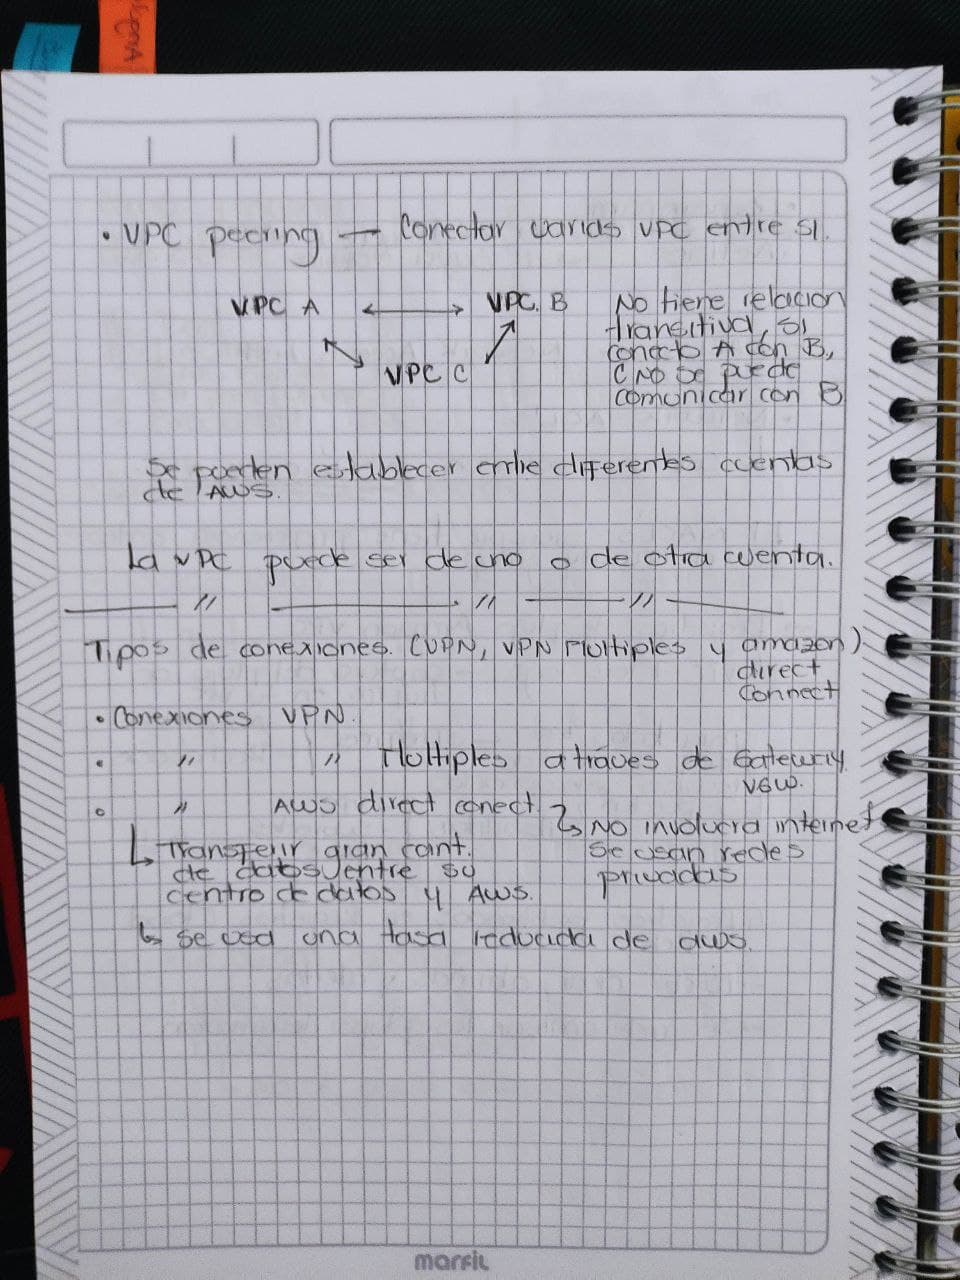 • VPC peering — Conectar varias VPC entre si.
VPC A
VPC. B
VPC C
No tiene relacion
transitiva, si
conecto A con B,
C no se puede
comunicar con B
Se pueden establecer entre diferentes cuentas
de AWS.
La VPC puede ser de uno o de otra cuenta.
Tipos de conexiones. (VPN, VPN Multiples y amazon)
direct
connect
• Conexiones VPN.
• " " Multiples a traves de Gateway
VGW.
" AWS direct conect.
No involucra internet
se usan redes
privadas
Transferir gran cant.
de datos entre su
centro de datos y AWS.
Se usa una tasa reducida de aws.
marfil